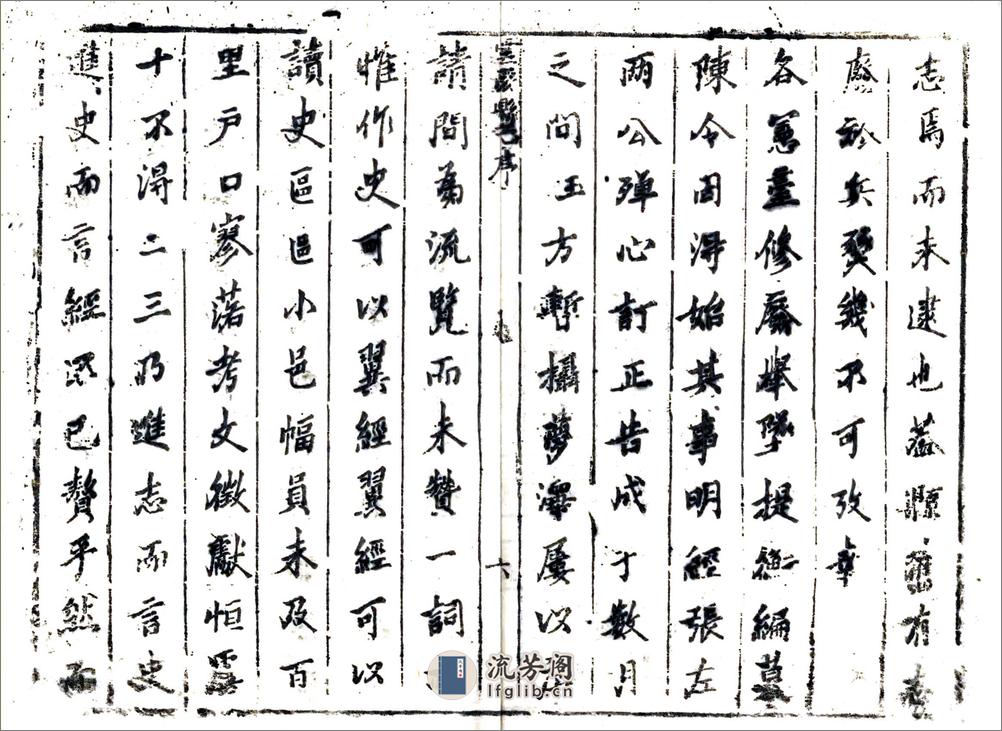 志焉而未逮也蓋縣雖有志
廢於兵燹幾不可攷幸
各憲臺修廢舉墜提衡編摹
陳令因淂始其事明經張左
兩公殫心訂正告成于數月
之問玉方暫攝夢澤屢以
序
六
請問爲流覽而未贊一詞
惟作史可以翼經翼經可以
讀史區區小邑幅員未及百
里戶口寥落考文徵獻恒
十不淂二三乃進志而言史
進史而言經不已贅乎然而
流芳阁
lfglib.cn